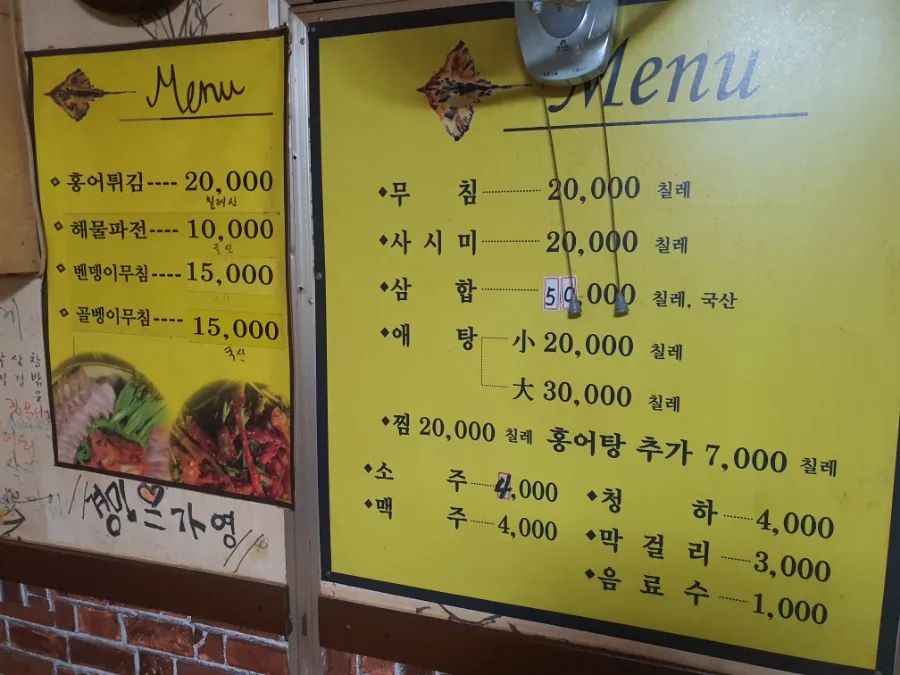 Menu
홍어튀김---- 20,000
칠레산
해물파전---- 10,000
국산
벤뎅이무침---- 15,000
골벵이무침---- 15,000
국산
가영
Menu
무 침 20,000 칠레
사시미 20,000 칠레
삼 합 50,000 칠레, 국산
애 탕 小 20,000 칠레
大 30,000 칠레
찜 20,000 칠레 홍어탕 추가 7,000 칠레
소 주 4,000
맥 주 4,000
청 하 4,000
막걸리 3,000
음료수 1,000